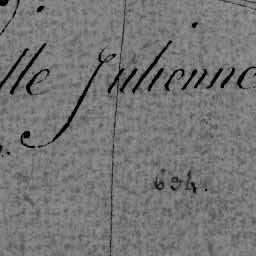 lle Julienne
634.